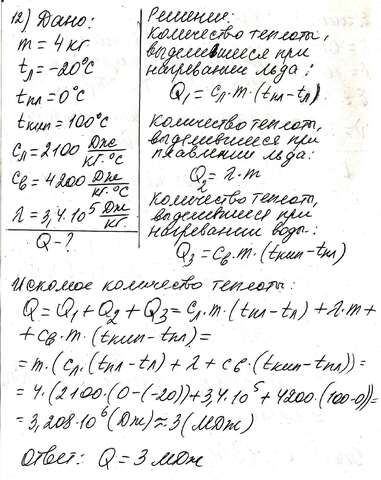 12) Дано:
m = 4 кг
tл = -20°C
tпл = 0°C
tкип = 100°C
cл = 2100 Дж/кг·°C
cв = 4200 Дж/кг·°C
λ = 3,4·10⁵ Дж/кг
Q - ?
Решение:
Количество теплоты,
выделившееся при
нагревании льда:
Q₁ = cл·m·(tпл-tл)
количество теплоты,
выделившееся при
плавлении льда:
Q₂ = λ·m
количество теплоты,
выделившееся при
нагревании воды:
Q₃ = cв·m·(tкип-tпл)
Искомое количество теплоты:
Q = Q₁ + Q₂ + Q₃ = cл·m·(tпл-tл) + λ·m +
+ cв·m·(tкип-tпл) =
= m·(cл·(tпл-tл) + λ + cв·(tкип-tпл)) =
= 4·(2100·(0-(-20)) + 3,4·10⁵ + 4200·(100-0)) =
= 3,208·10⁶ (Дж) ≈ 3 (МДж)
Ответ: Q = 3 МДж